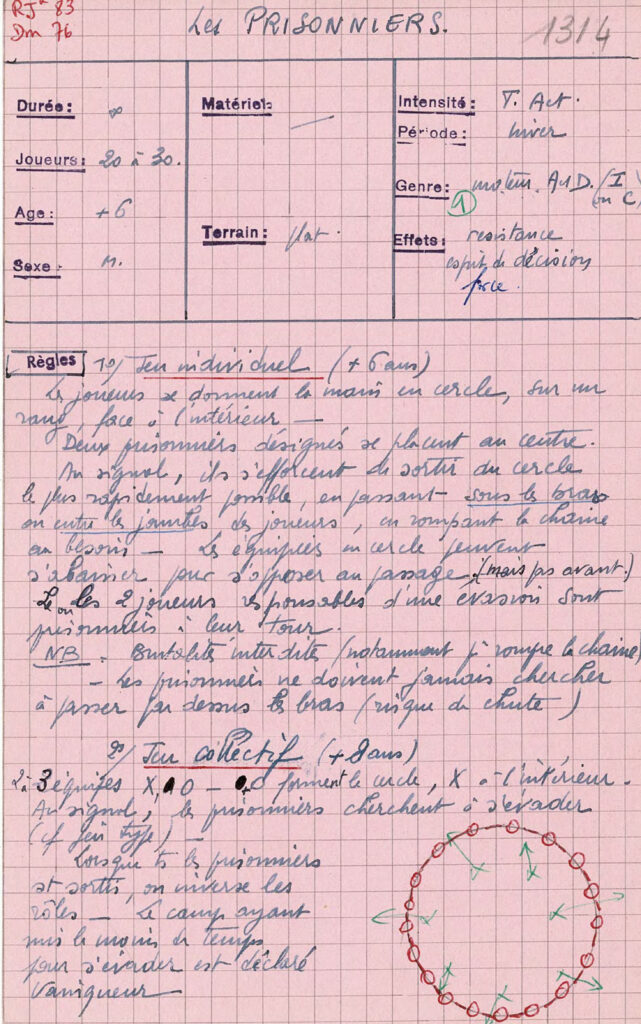 RJn 83
Dm 76
Les PRISONNIERS.
1314
Durée: ∞
Joueurs: 20 à 30.
Age: +6
Sexe: M.
Matériel: —
Terrain: plat.
Intensité: T. Act.
Période: hiver
Genre: moteur. A et D. (I
1 ou C)
Effets: resistance
esprit de décision
force.
Règles 1o/ Jeu individuel (+ 6 ans)
Les joueurs se donnent la main en cercle, sur un
rang, face à l'intérieur —
Deux prisonniers désignés se placent au centre.
Au signal, ils s'efforcent de sortir du cercle
le plus rapidement possible, en passant sous les bras
ou entre les jambes des joueurs, en rompant la chaine
au besoin — Les équipiers en cercle peuvent
s'abaisser pour s'opposer au passage. (mais pas avant.)
Le ou les 2 joueurs responsables d'une évasion sont
prisonniers à leur tour.
NB - Brutalités interdites (notamment pr rompre la chaine)
- Les prisonniers ne doivent jamais chercher
à passer par dessus les bras (risque de chute)
2o/ Jeu collectif (+ 8 ans)
2 à 3 équipes X, O - O forment le cercle, X à l'intérieur.
Au signal, les prisonniers cherchent à s'évader
(cf jeu type) —
Lorsque ts les prisonniers
st sortis, on inverse les
rôles — Le camp ayant
mis le moins de temps
pour s'évader est déclaré
Vainqueur —